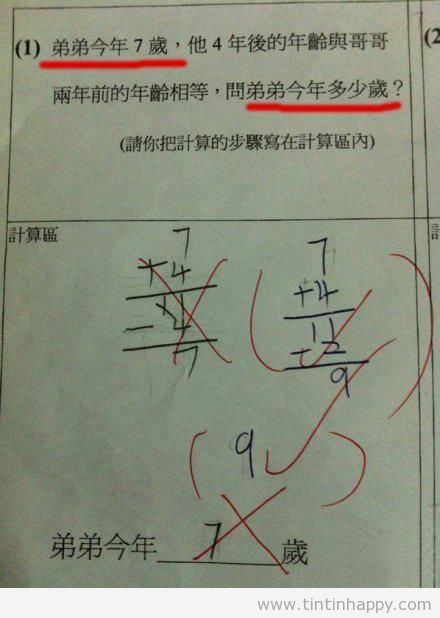 (1) 弟弟今年 7 歲，他 4 年後的年齡與哥哥
兩年前的年齡相等，問弟弟今年多少歲？
(請你把計算的步驟寫在計算區內)
(2
計算區
7
+4
11
-4
7
(
7
+4
11
-2
9
)
( 9 )
弟弟今年 7 歲
www.tintinhappy.com